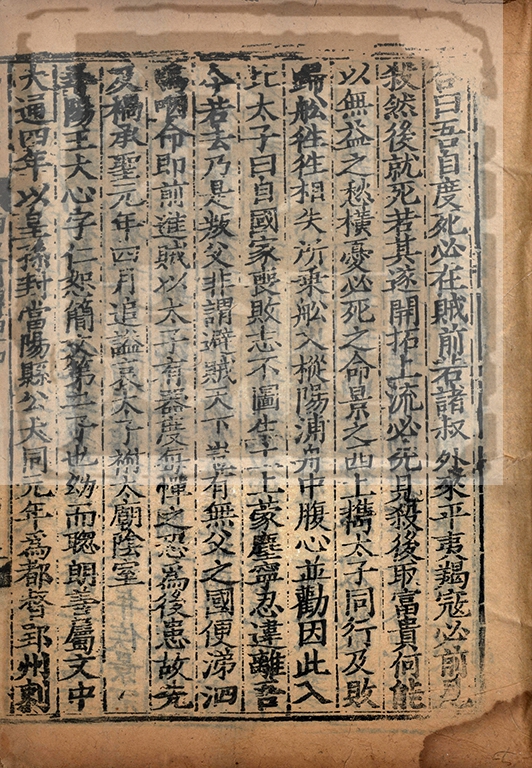 答曰吾自度死必在賊前若諸叔外來平夷羯寇必前見
殺然後就死若其遂開拓上流必先見殺後取富貴何能
以無益之愁橫憂必死之命景之西上攜太子同行及敗
歸舩往往相失所乘舩入樅陽浦舟中腹心並勸因此入
北太子曰自國家喪敗志不圖生主上蒙塵寧忍違離吾
今若去乃是叛父非謂避賊天下豈有無父之國便涕泗
嗚咽命即前進賊以太子有器度每憚之恐爲後患故先
及禍承聖元年四月追謚哀太子祔太廟陰室
尋陽王大心字仁恕簡文第二子也幼而聰朗善屬文中
大通四年以皇孫封當陽縣公大同元年爲都督郢州刺